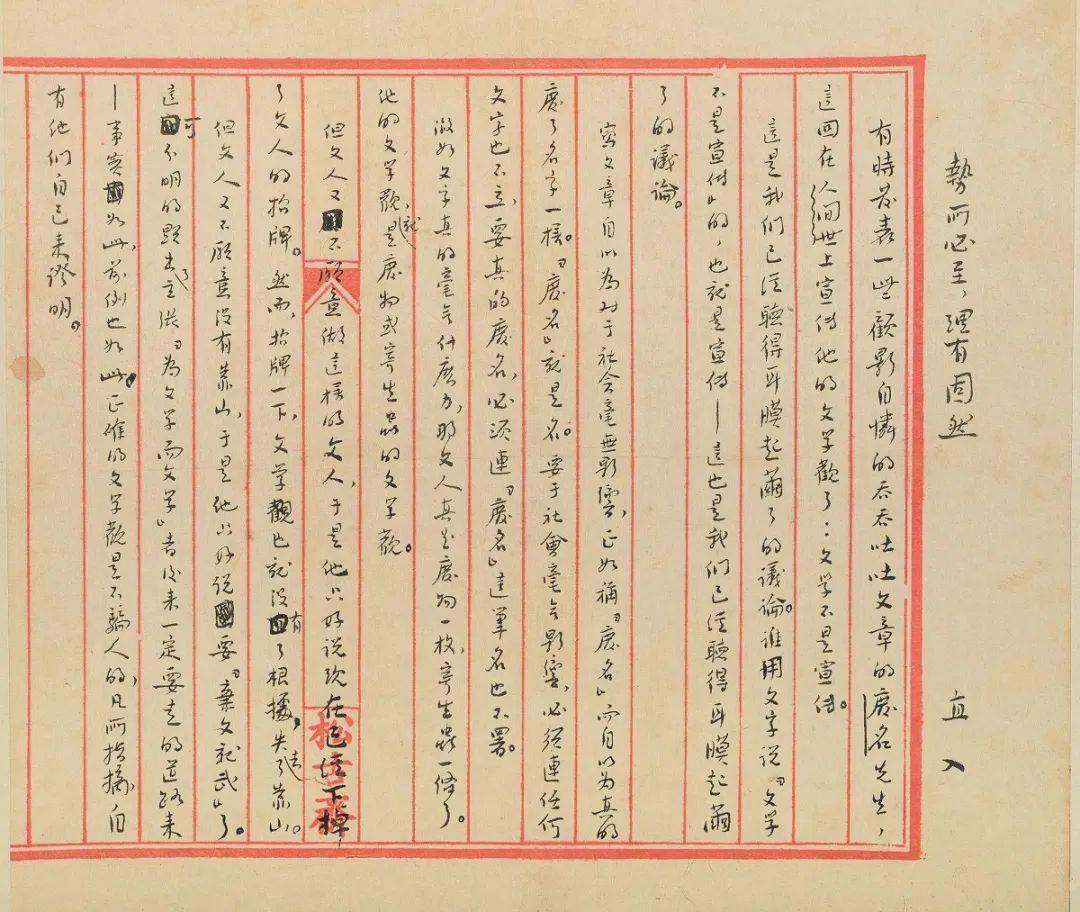 勢所必至，理有固然
直入
有時發表一些顧影自憐的吞吞吐吐文章的廢名先生，
這回在人间世上宣傳他的文学觀了：文学不是宣傳。
這是我们已经聽得耳膜起繭了的議論。誰用文字说「文学
不是宣傳」的，也就是宣傳——這也是我们已经聽得耳膜起繭
了的議論。
寫文章自以為对于社会毫無影響，正如稱「廢名」而自以为真的
廢了名字一樣。「廢名」就是名。要于社會毫无影響，必须连任何
文字也不立，要真的廢名，必须連「廢名」這筆名也不署。
假如文字真的毫无什麽力，那文人真是廢物一枚，寄生蟲一條了。
他的文学觀，就是廢物或寄生蟲的文学觀。
但文人又不願意做這樣的文人，于是他只好说现在已经下掉
了文人的招牌。然而，招牌一下，文学觀也就没有了根據，失去了靠山。
但文人又不願意没有靠山，于是他只好说要「棄文就武」了。
這可分明的顯出了主張「为文学而文学」者後来一定要走的道路来
——事实如此，前例也如此。正確的文学觀是不騙人的，凡所指摘，自
有他们自己来證明。
松古斋